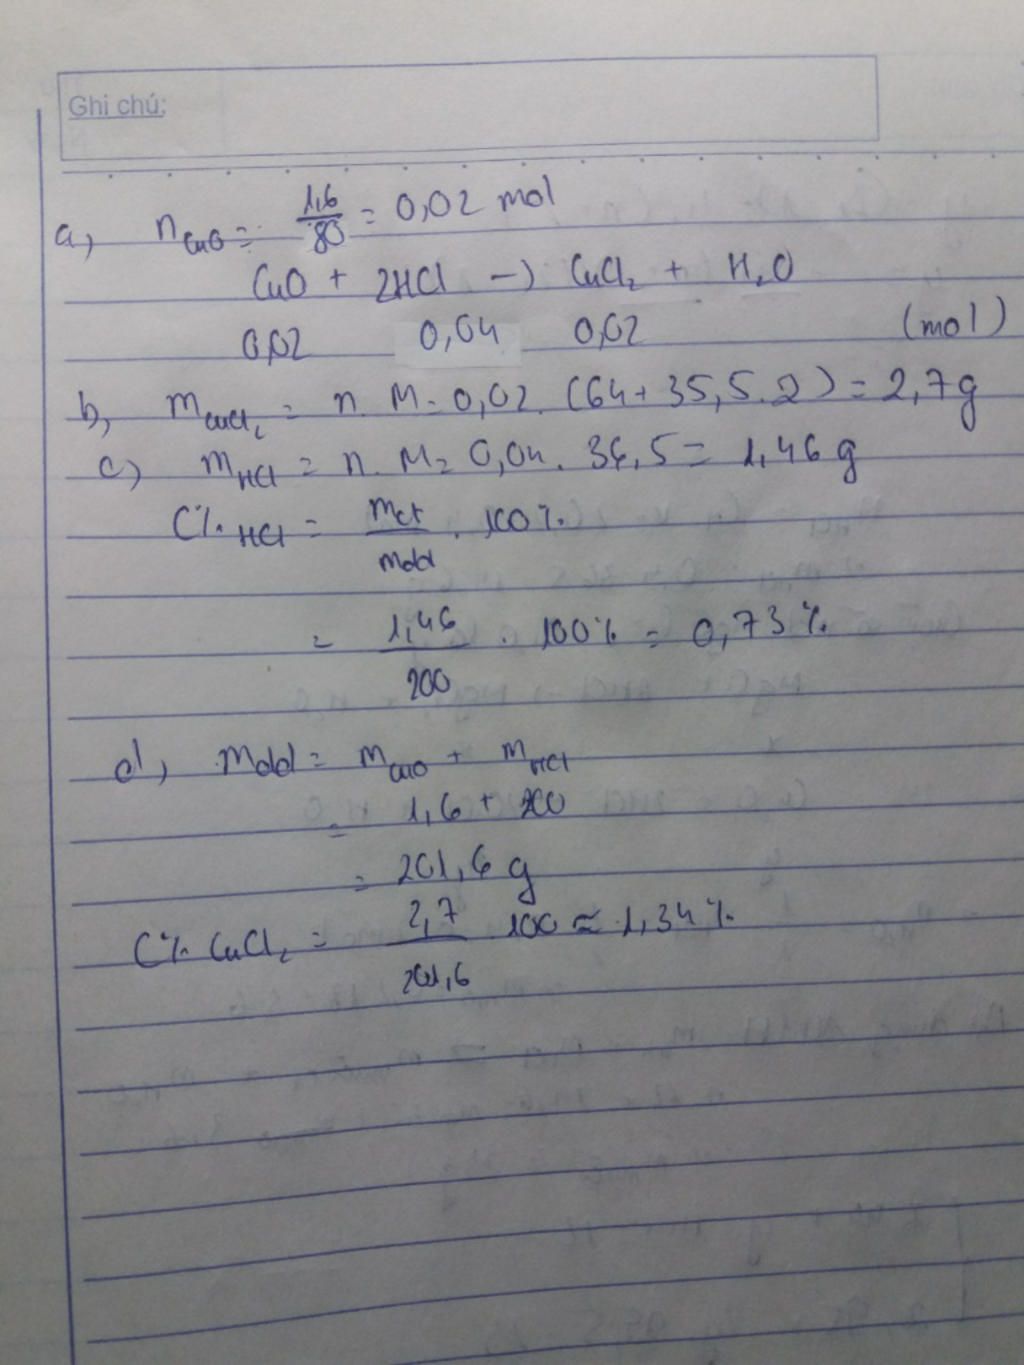 Ghi chú:
a, nCuO = 1,6/80 = 0,02 mol
CuO + 2HCl → CuCl₂ + H₂O
0,02 0,04 0,02 (mol)
b, mCuCl₂ = n. M = 0,02. (64+35,5.2) = 2,7g
c) mHCl = n. M = 0,04. 36,5 = 1,46 g
C% HCl = mct/mdd . 100%
= 1,46/200 . 100% = 0,73%
d, mdd = mCuO + mHCl
= 1,6 + 200
= 201,6 g
C% CuCl₂ = 2,7/201,6 . 100 ≈ 1,34%